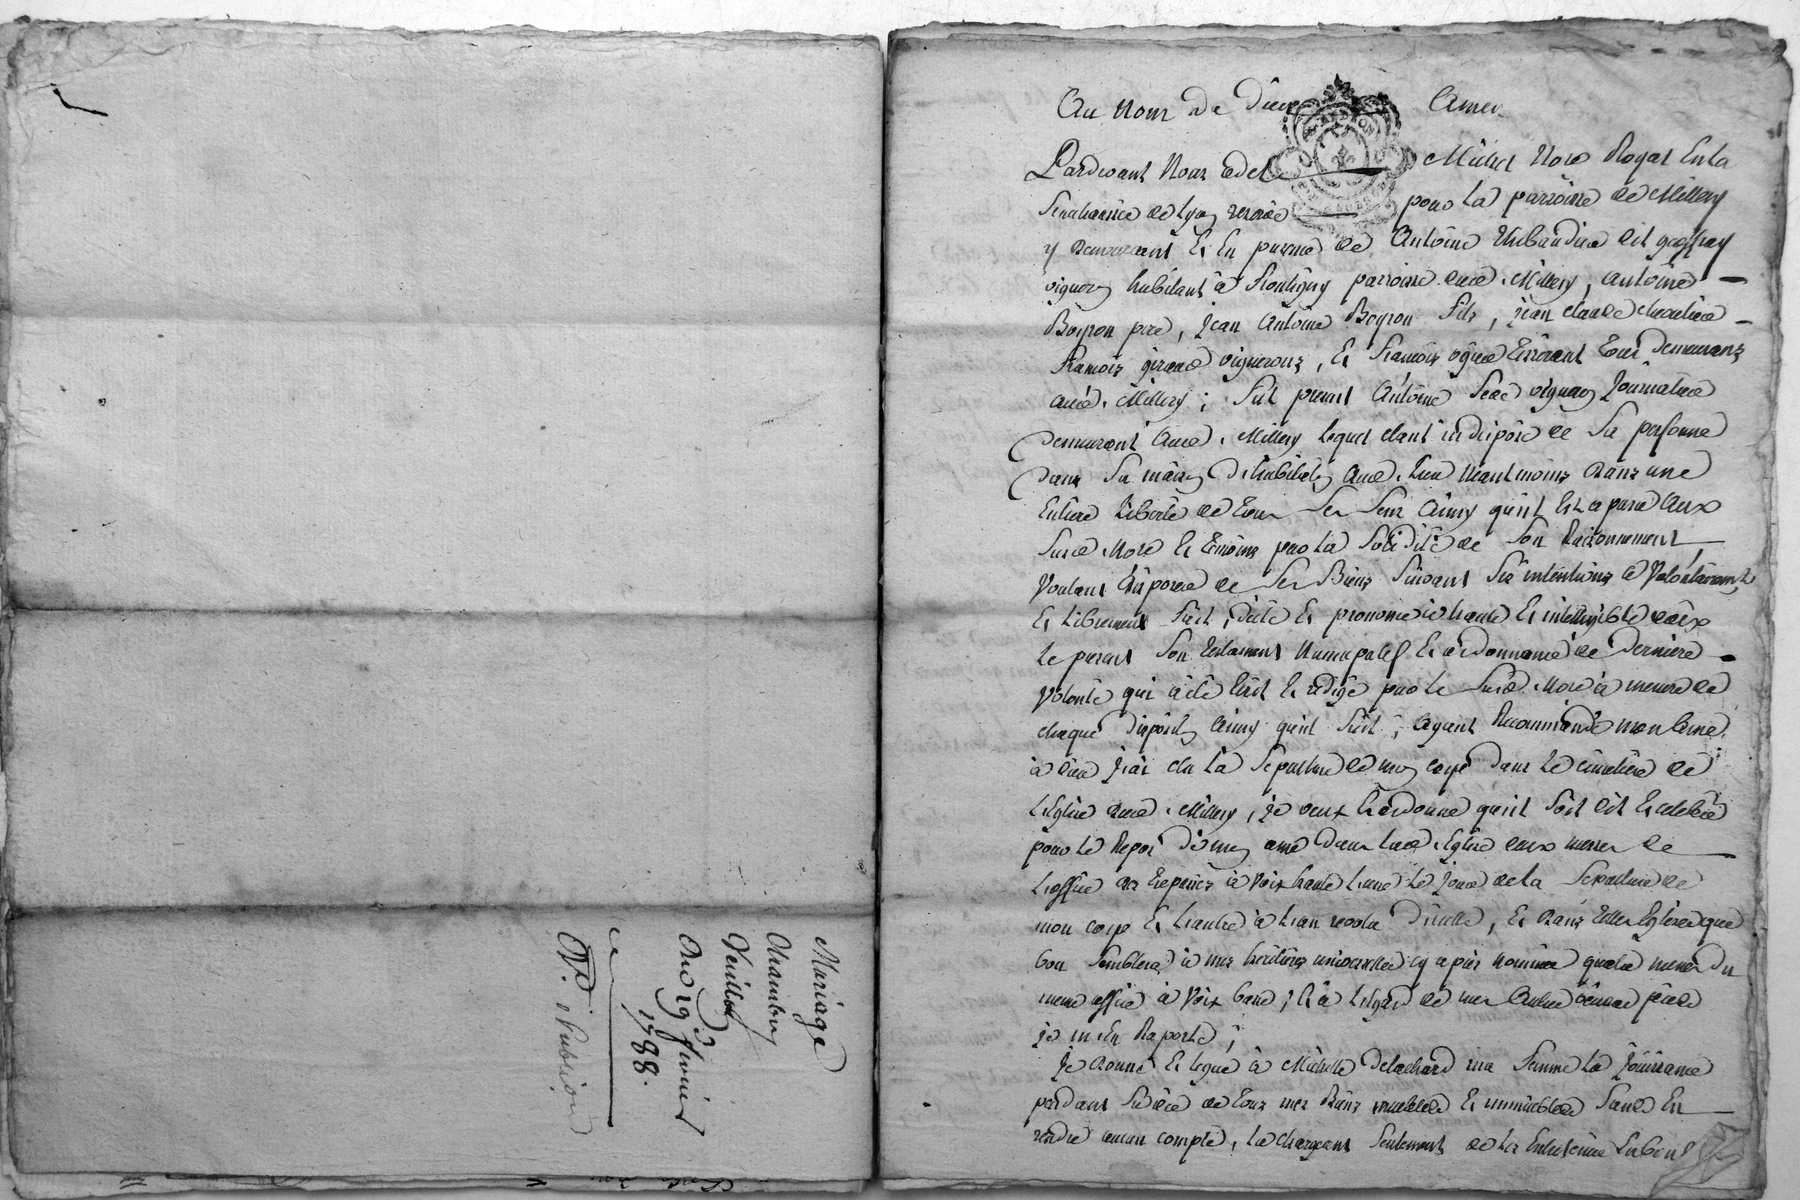 Mariage
Chambry
Veuillod
Du 19e fevrier
1788.
Au Nom de dieu Amen
Pardevant Nous Michel More Royal En la
Senechaussée de Lyon reservé pour la parroisse de Millery
y demeurant Et En presence de Antoine Thibaudier dit geoffray
vigneron habitant à parroisse dud. Millery, Antoine
Boyron pere, Jean Antoine Boyron fils, jean claude
Francois girard vignerons, Et Francois Tisserant tous demeurants
aud. Millery; fut present Antoine vigneron Journalier
demeurant Aud. Millery lequel etant indispôsé de Sa personne
dans Sa maison d'habitation Aud. Lieu Neantmoins dans une
Entiere Liberté de tous Ses Sens Ainsy qu'il Est aparu Aux
Susd. More Et temoins par la Solidité de Son Raisonnement,
Voulant disposer de Ses Biens Suivant Ses intentions a
Et Librement fait, dicté Et prononcé à haute Et intelligible voix
Le present Son testament Nuncupatif Et ordonnance de derniere
Volonté qui a été Ecrit Et redigé par le Susd. More à mesure de
chaque disposition Ainsy qu'il Suit; Ayant Recommandé mon Ame
à dieu J'ai elu la Sepulture de mon corps dans le cimetiere de
L'Eglise dud. Millery, je veux Et ordonne qu'il Soit dit Et celebré
pour le Repos de mon ame dans lad. Eglise deux messes de
L'office des trepassés à Voix haute L'une le jour de la Sepulture de
mon corps Et L'autre à L'an revolu d'icelle, Et dans telles Eglises que
bon Semblera à mes heritieres universelles cy apres nommées quatre messes du
meme office à Voix basse; Et à L'Egard de mes Autres
je m'En Raporte;
Je donne Et legue à Michelle Delachard ma femme la Jouissance
pendant Sa Vie de tous mes Biens meubles Et immeubles Sans En
rendre aucun compte, la chargeant Seulement de les Entretenir En bon